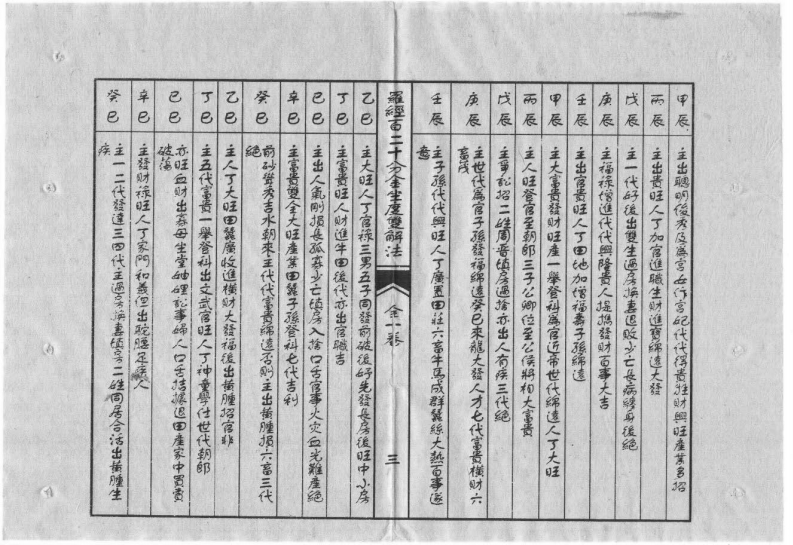 甲辰 主出聰明俊秀及為宮女作宮妃代代得貴進財興旺產業多招
丙辰 主出貴旺人丁加官進職生財進寶綿遠大發
戊辰 主一代好後出雙生過房換妻退敗少亡長病繞身後絕
庚辰 主福祿增進代代興隆貴人提携發財百事大吉
壬辰 主出官貴旺人丁田地加增福壽子孫綿遠
甲辰 主大富貴發財旺產一舉登科為官近帝世代綿遠人丁大旺
丙辰 主人旺登官至朝郎三子公卿位至公侯將相大富貴
戊辰 主爭訟招二姓周晋填房過捨亦出人有疾三代絕
庚辰 主世代為官子孫發福綿遠癸巳來龍大發人才七代富貴橫財六
畜茂
壬辰 主子孫代代興旺人丁廣置田莊六畜牛馬成群蠶絲大熱百事遂
意
羅經百二十分金坐度雙解法 全一卷 三
乙巳 主大旺人丁官祿三男五子同發前破後好先發長房後旺中小房
丁巳 主富貴旺人財進牛田後代亦出官職吉
己巳 主出人氣剛損長孤寡少亡填房入捨口舌官事火灾血光難產絕
辛巳 主富貴雙全大旺產業田蠶子孫登科七代吉利
癸巳 前砂聳秀吉水朝來主代代富貴綿遠否則主出黃腫損六畜三代
絕
乙巳 主人丁大旺田蠶廣收進橫財大發福後出黃腫招官非
丁巳 主五代富貴一舉登科出文武官旺人丁神童學仕世代朝郎
己巳 亦旺血財出寡母坐堂妯娌訟事婦人口舌拮據退田產家中買賣
破蕩
辛巳 主發財祿旺人丁家門和義但出駝腰足疾人
癸巳 主一二代發達三四代主過房換妻填房二姓同居合活出黃腫生
疾